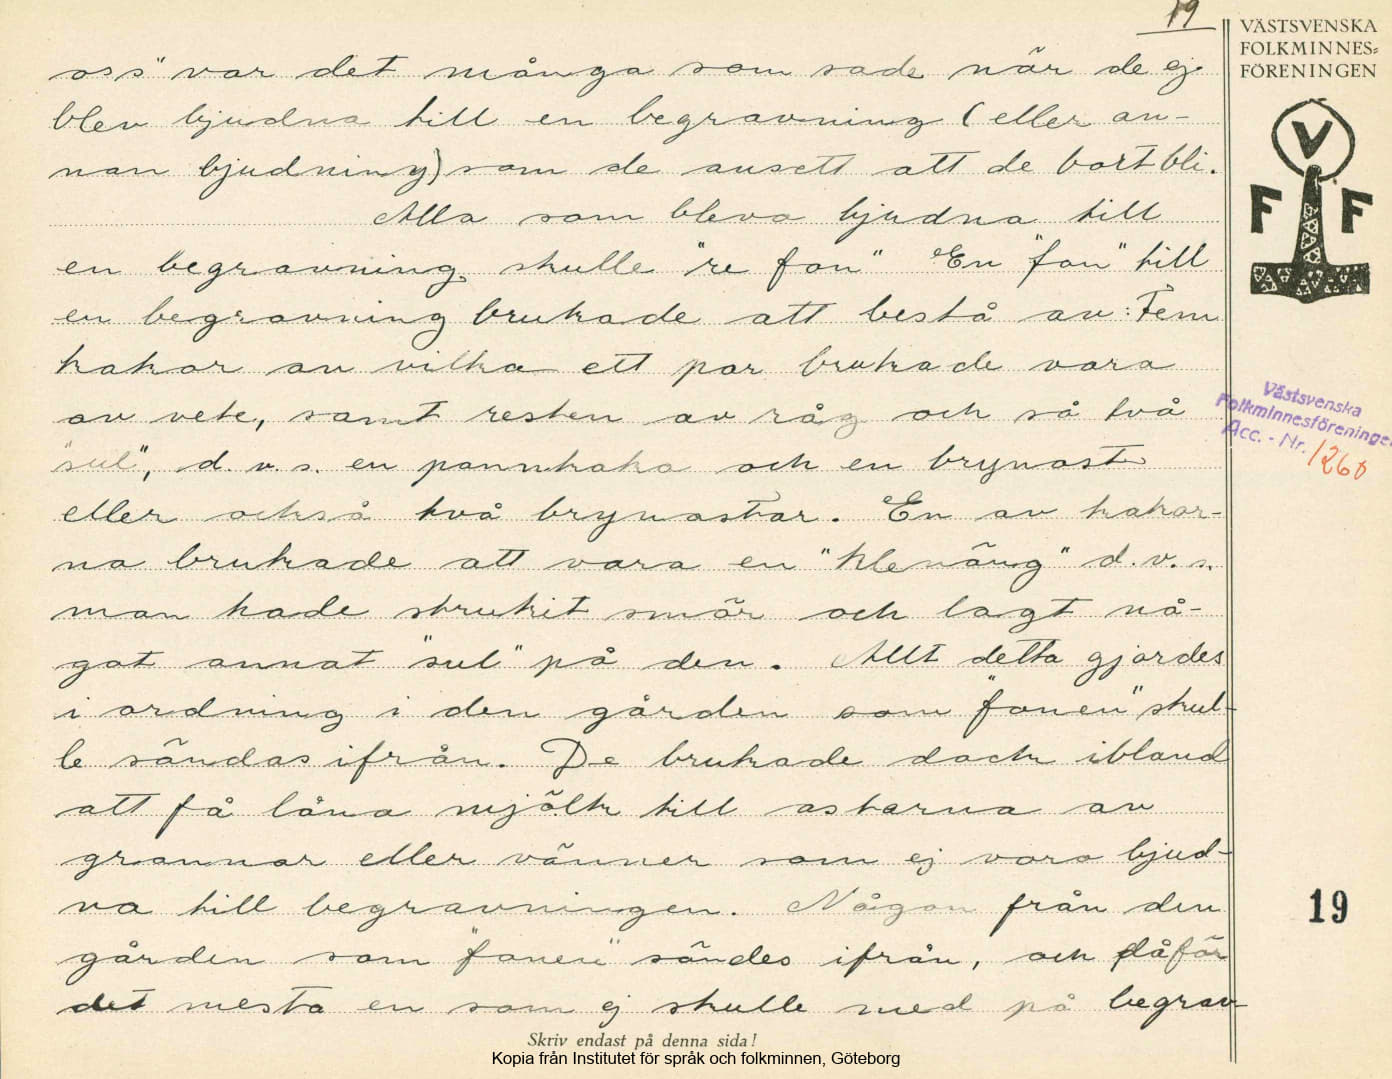 19
VÄSTSVENSKA
FOLKMINNES-
FÖRENINGEN
V
F F
oss" var det många som sade när de ej
blev bjudna till en begravning (eller an-
nan bjudning) som de ansett att de bort bli.
Alla som bleva bjudna till
en begravning skulle "re fon" En "fon" till
en begravning brukade att bestå av: Fem
kakor av vilka ett par brukade vara
av vete, samt resten av råg och så två
"sul", d.v.s. en pannkaka och en brynost
eller också två brynostar. En av kakor-
na brukade att vara en "klenäng" d.v.s.
man hade strukit smör och lagt nå-
got annat "sul" på den. Allt detta gjordes
i ordning i den gården som "fonen" skul-
le sändas ifrån. De brukade dock ibland
att få låna mjölk till ostarna av
grannar eller vänner som ej voro bjud-
na till begravningen. Någon från den
gården som "fonen" sändes ifrån, och då för
det mesta en som ej skulle med på begrav-
Västsvenska
Folkminnesföreningen
Acc. - Nr. 1260
19
Skriv endast på denna sida!
Kopia från Institutet för språk och folkminnen, Göteborg